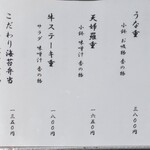 うな重
小鉢 お吸物 香の物
三八〇〇
天婦羅重
小鉢 味噌汁 香の物
一六五〇
牛ステーキ重
サラダ 味噌汁 香の物
一八〇〇
こだわり海苔弁当
一三五〇円